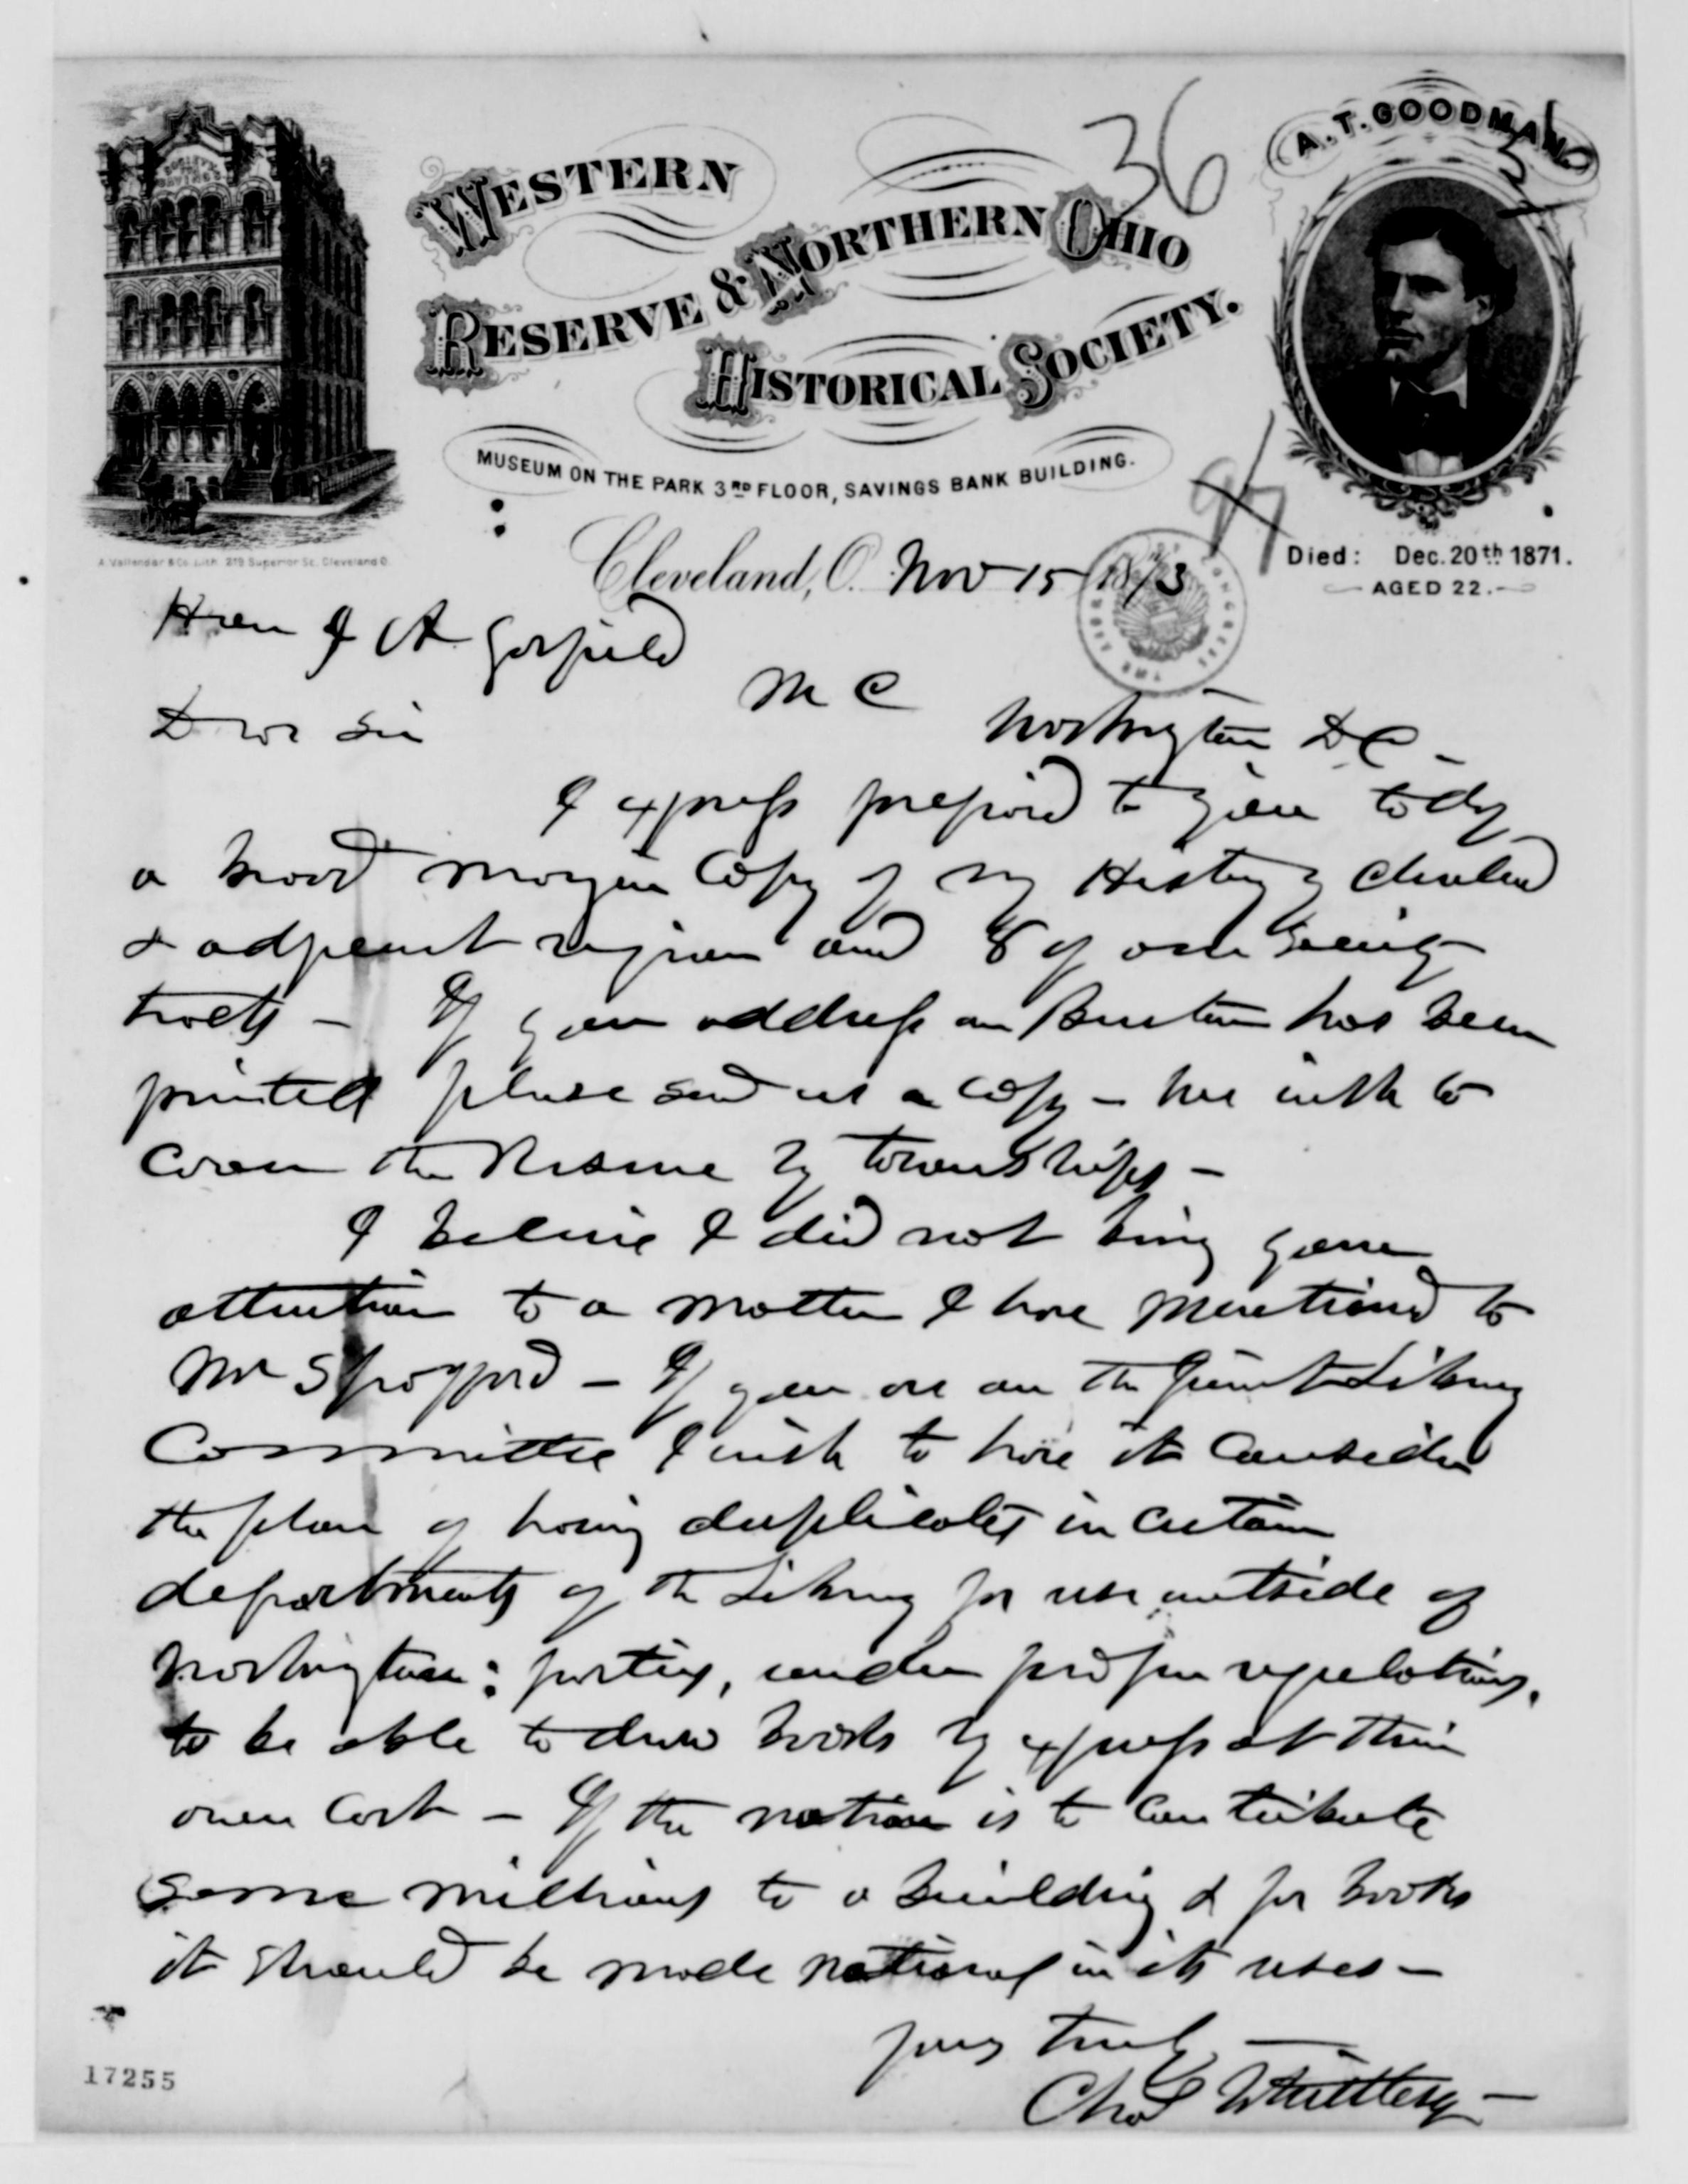 36
A. T. GOODMAN
WESTERN
RESERVE & NORTHERN OHIO
HISTORICAL SOCIETY.
MUSEUM ON THE PARK 3RD FLOOR, SAVINGS BANK BUILDING.
Died: Dec. 20th 1871.
AGED 22.
A. Vallendar & Co. Lith. 219 Superior St. Cleveland O.
Cleveland, O. Nov 15 1873
Hon J A Garfield
M C
Washington DC -
Dear Sir
I express prepaid to you today
a broad margin Copy of my History of Cleveland
& adjacent region and 8 of our Society
tracts - If your address on Burton has been
printed please send us a copy - We wish to
cover the Reserve by townships -
I believe I did not bring your
attention to a matter I have mentioned to
Mr Spofford - If you are on the Joint Library
Committee I wish to have it consider
the plan of having duplicates in certain
departments of the Library for use outside of
Washington: parties, under proper regulations,
to be able to draw books by express at their
own cost - If the nation is to contribute
some millions to a building & for books
it should be made national in its uses -
yours truly
Chas Whittlesey -
17255